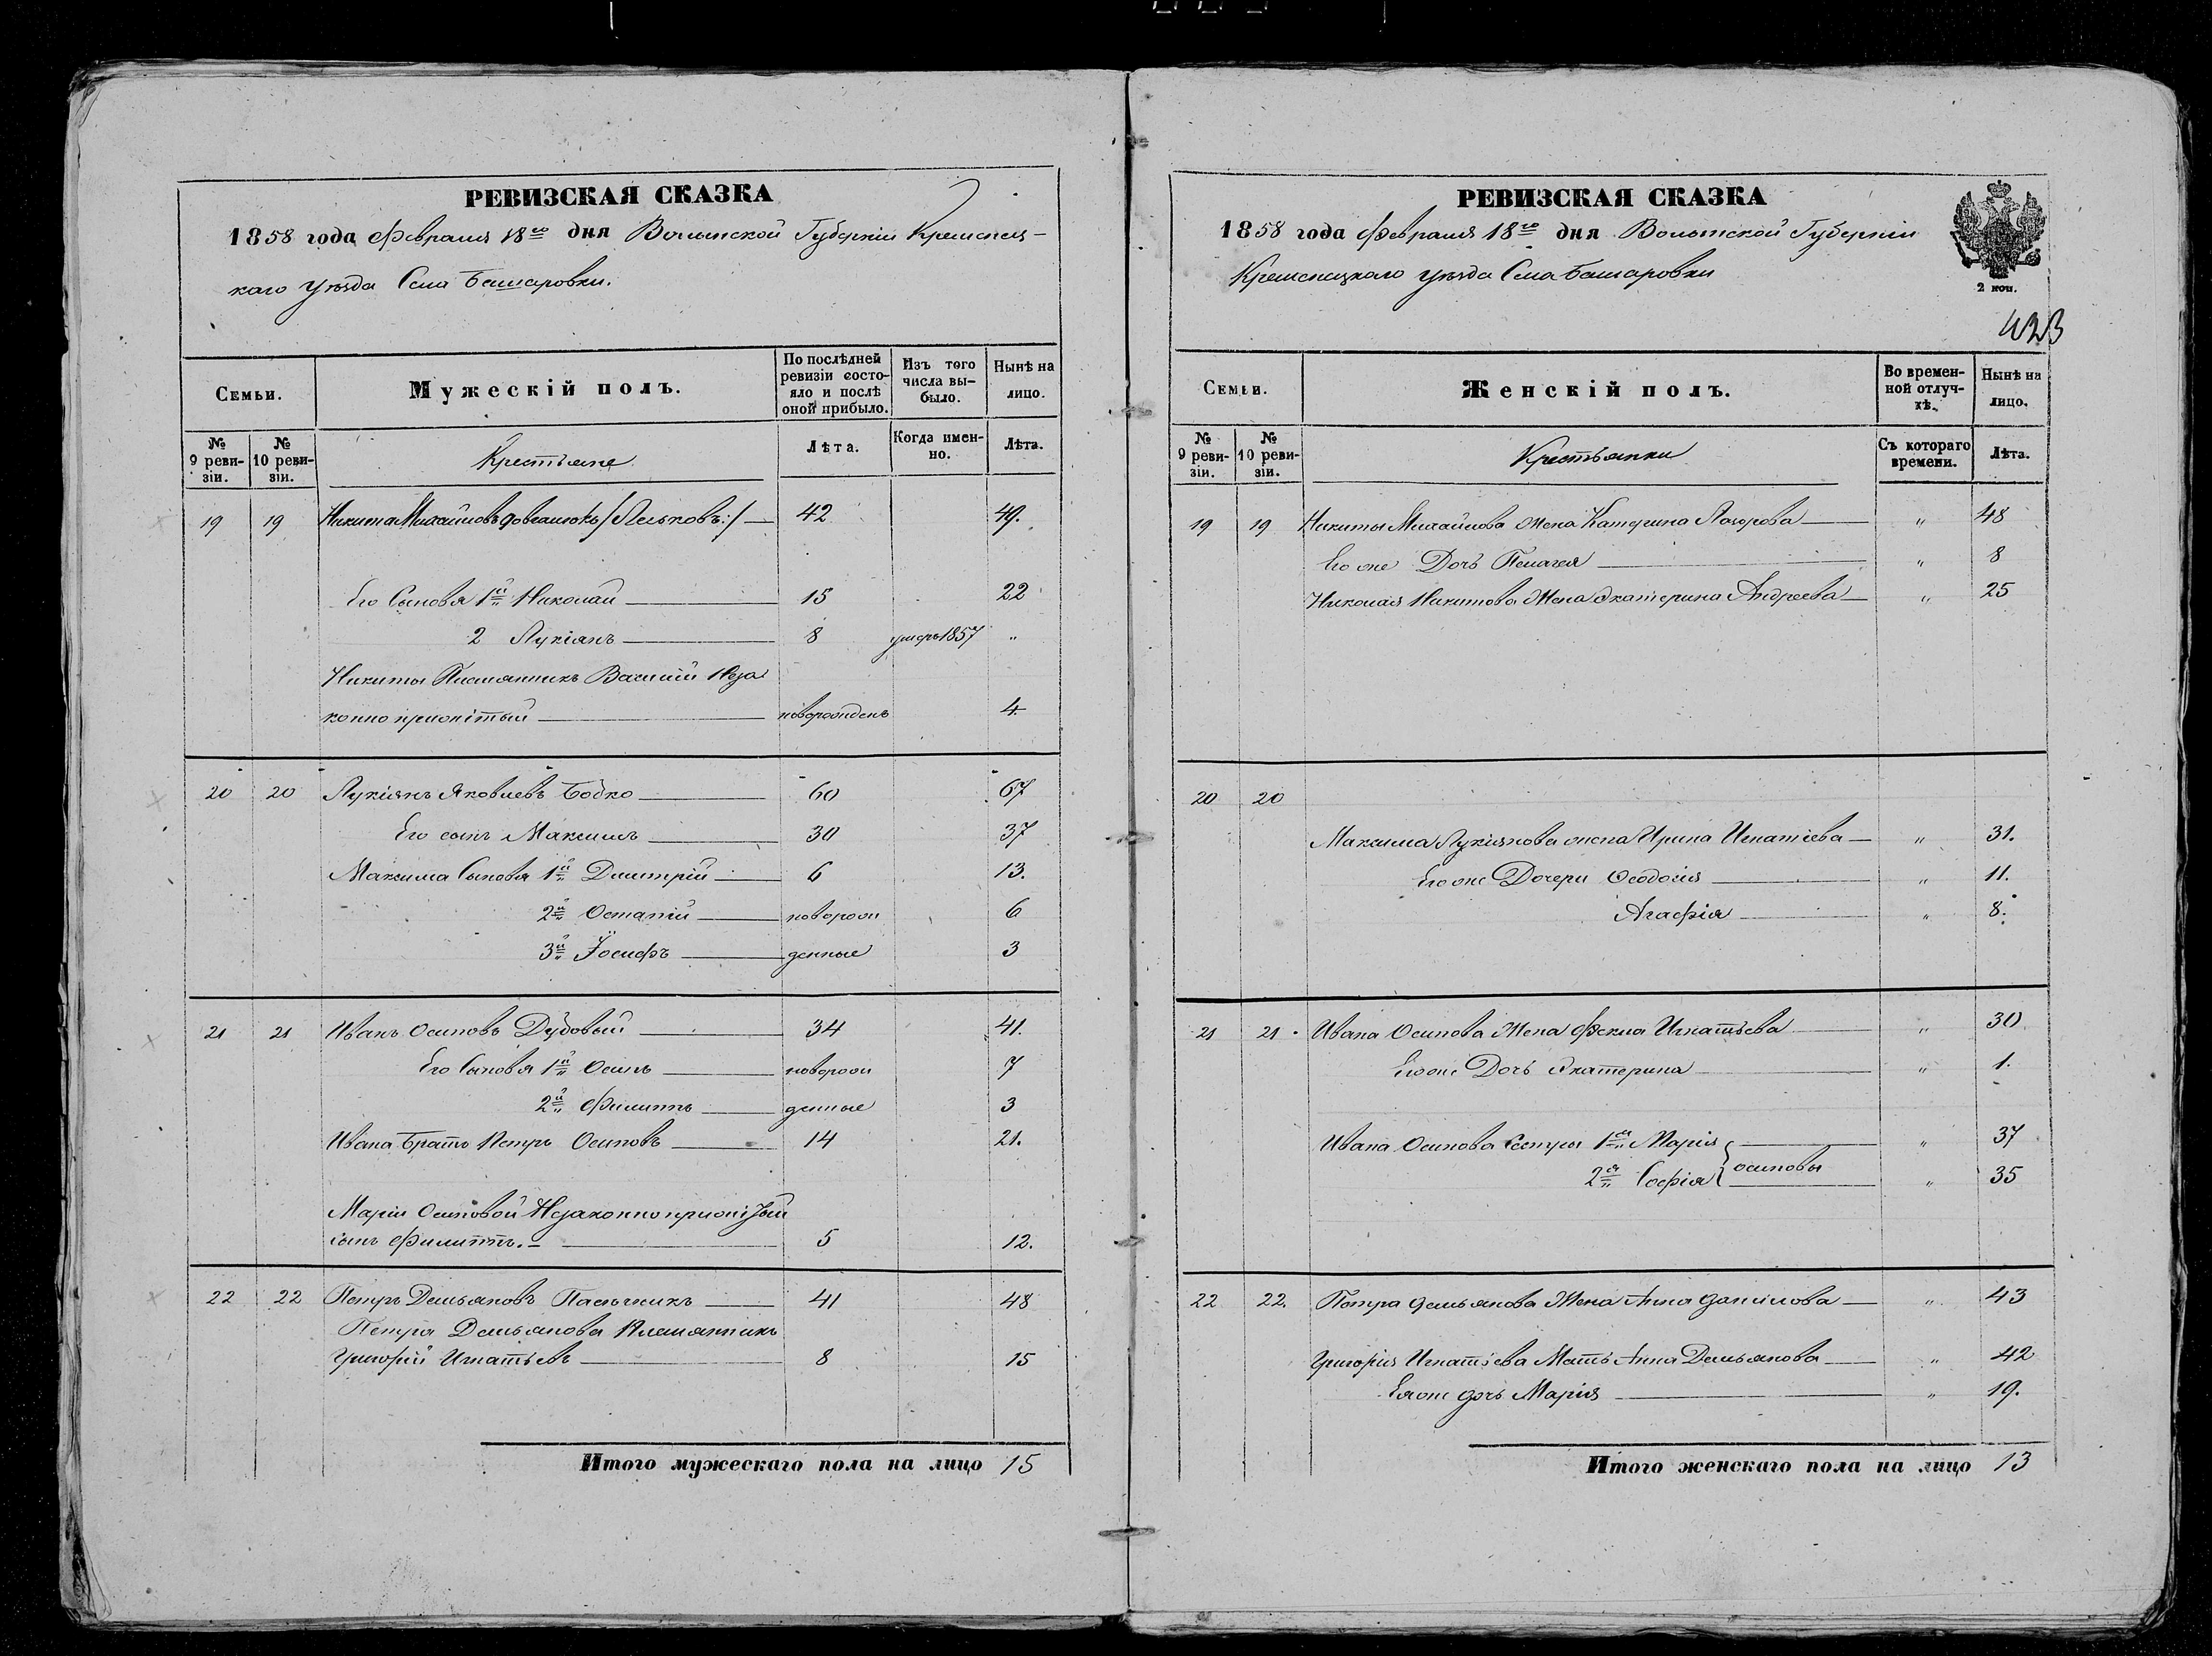 РЕВИЗСКАЯ СКАЗКА
1858 года Февраля 18го дня Волынской Губерніи Кременец-
каго Уѣзда Села Башаровки.
Семьи.
Мужескій полъ.
По послѣдней ревизіи состояло и послѣ оной прибыло.
Изъ того числа вы-было.
Нынѣ на лицо.
№ 9 реви-зіи.
№ 10 реви-зіи.
Крестьяне
Лѣта.
Когда имен-но.
Лѣта.
19 19 Никита Михайловъ Довганюкъ /: Леськовъ :/ 42 49.
Его Сыновья 1й Николай 15 22
2 Лукіянъ 8 умеръ 1857 "
Никиты Племянникъ Василій Неза
конно прижитый новорожденъ 4
20 20 Лукіянъ Яковлевъ Бойко 60 67
Его сынъ Максимъ 30 37
Максима Сыновья 1й Дмитрій 6 13.
2й Остапій новорож 6
3й Іосифъ денные 3
21 21 Иванъ Осиповъ Дубовый 34 41.
Его Сыновья 1й Осипъ новорож 7
2й Филиппъ денные 3
Ивана Братъ Петръ Осиповъ 14 21.
Маріи Осиповой Незаконноприжитый
сынъ Филиппъ. 5 12.
22 22 Петръ Демьяновъ Пасѣчникъ 41 48
Петра Демьянова Племянникъ
Григорій Игнатьевъ 8 15
Итого мужескаго пола на лицо 15
РЕВИЗСКАЯ СКАЗКА
1858 года Февраля 18го дня Волынской Губерніи
Кременецкаго уѣзда Села Башаровки
2 коп.
423
Семьи.
Женскій полъ.
Во времен-ной отлуч-кѣ.
Нынѣ на лицо.
№ 9 реви-зіи.
№ 10 реви-зіи.
Крестьянки
Съ котораго времени.
Лѣта.
19 19 Никиты Михайлова жена Катерина Лазорова " 48
Его же Дочь Пелагея " 8
Николая Никитова Жена Екатерина Андреева " 25
20 20
Максима Лукіянова жена Ирина Игнатіева " 31.
Его же Дочери Феодосія " 11.
Агафія " 8.
21 21. Ивана Осипова Жена Фекла Игнатьева " 30
Его же Дочь Екатерина " 1.
Ивана Осипова Сестры 1я Марія " 37
2я Софія } осиповы " 35
22 22. Петра Демьянова Жена Анна Данилова " 43
Григорія Игнатіева Мать Анна Демьянова " 42
Ея же дочь Марія " 19.
Итого женскаго пола на лицо 13